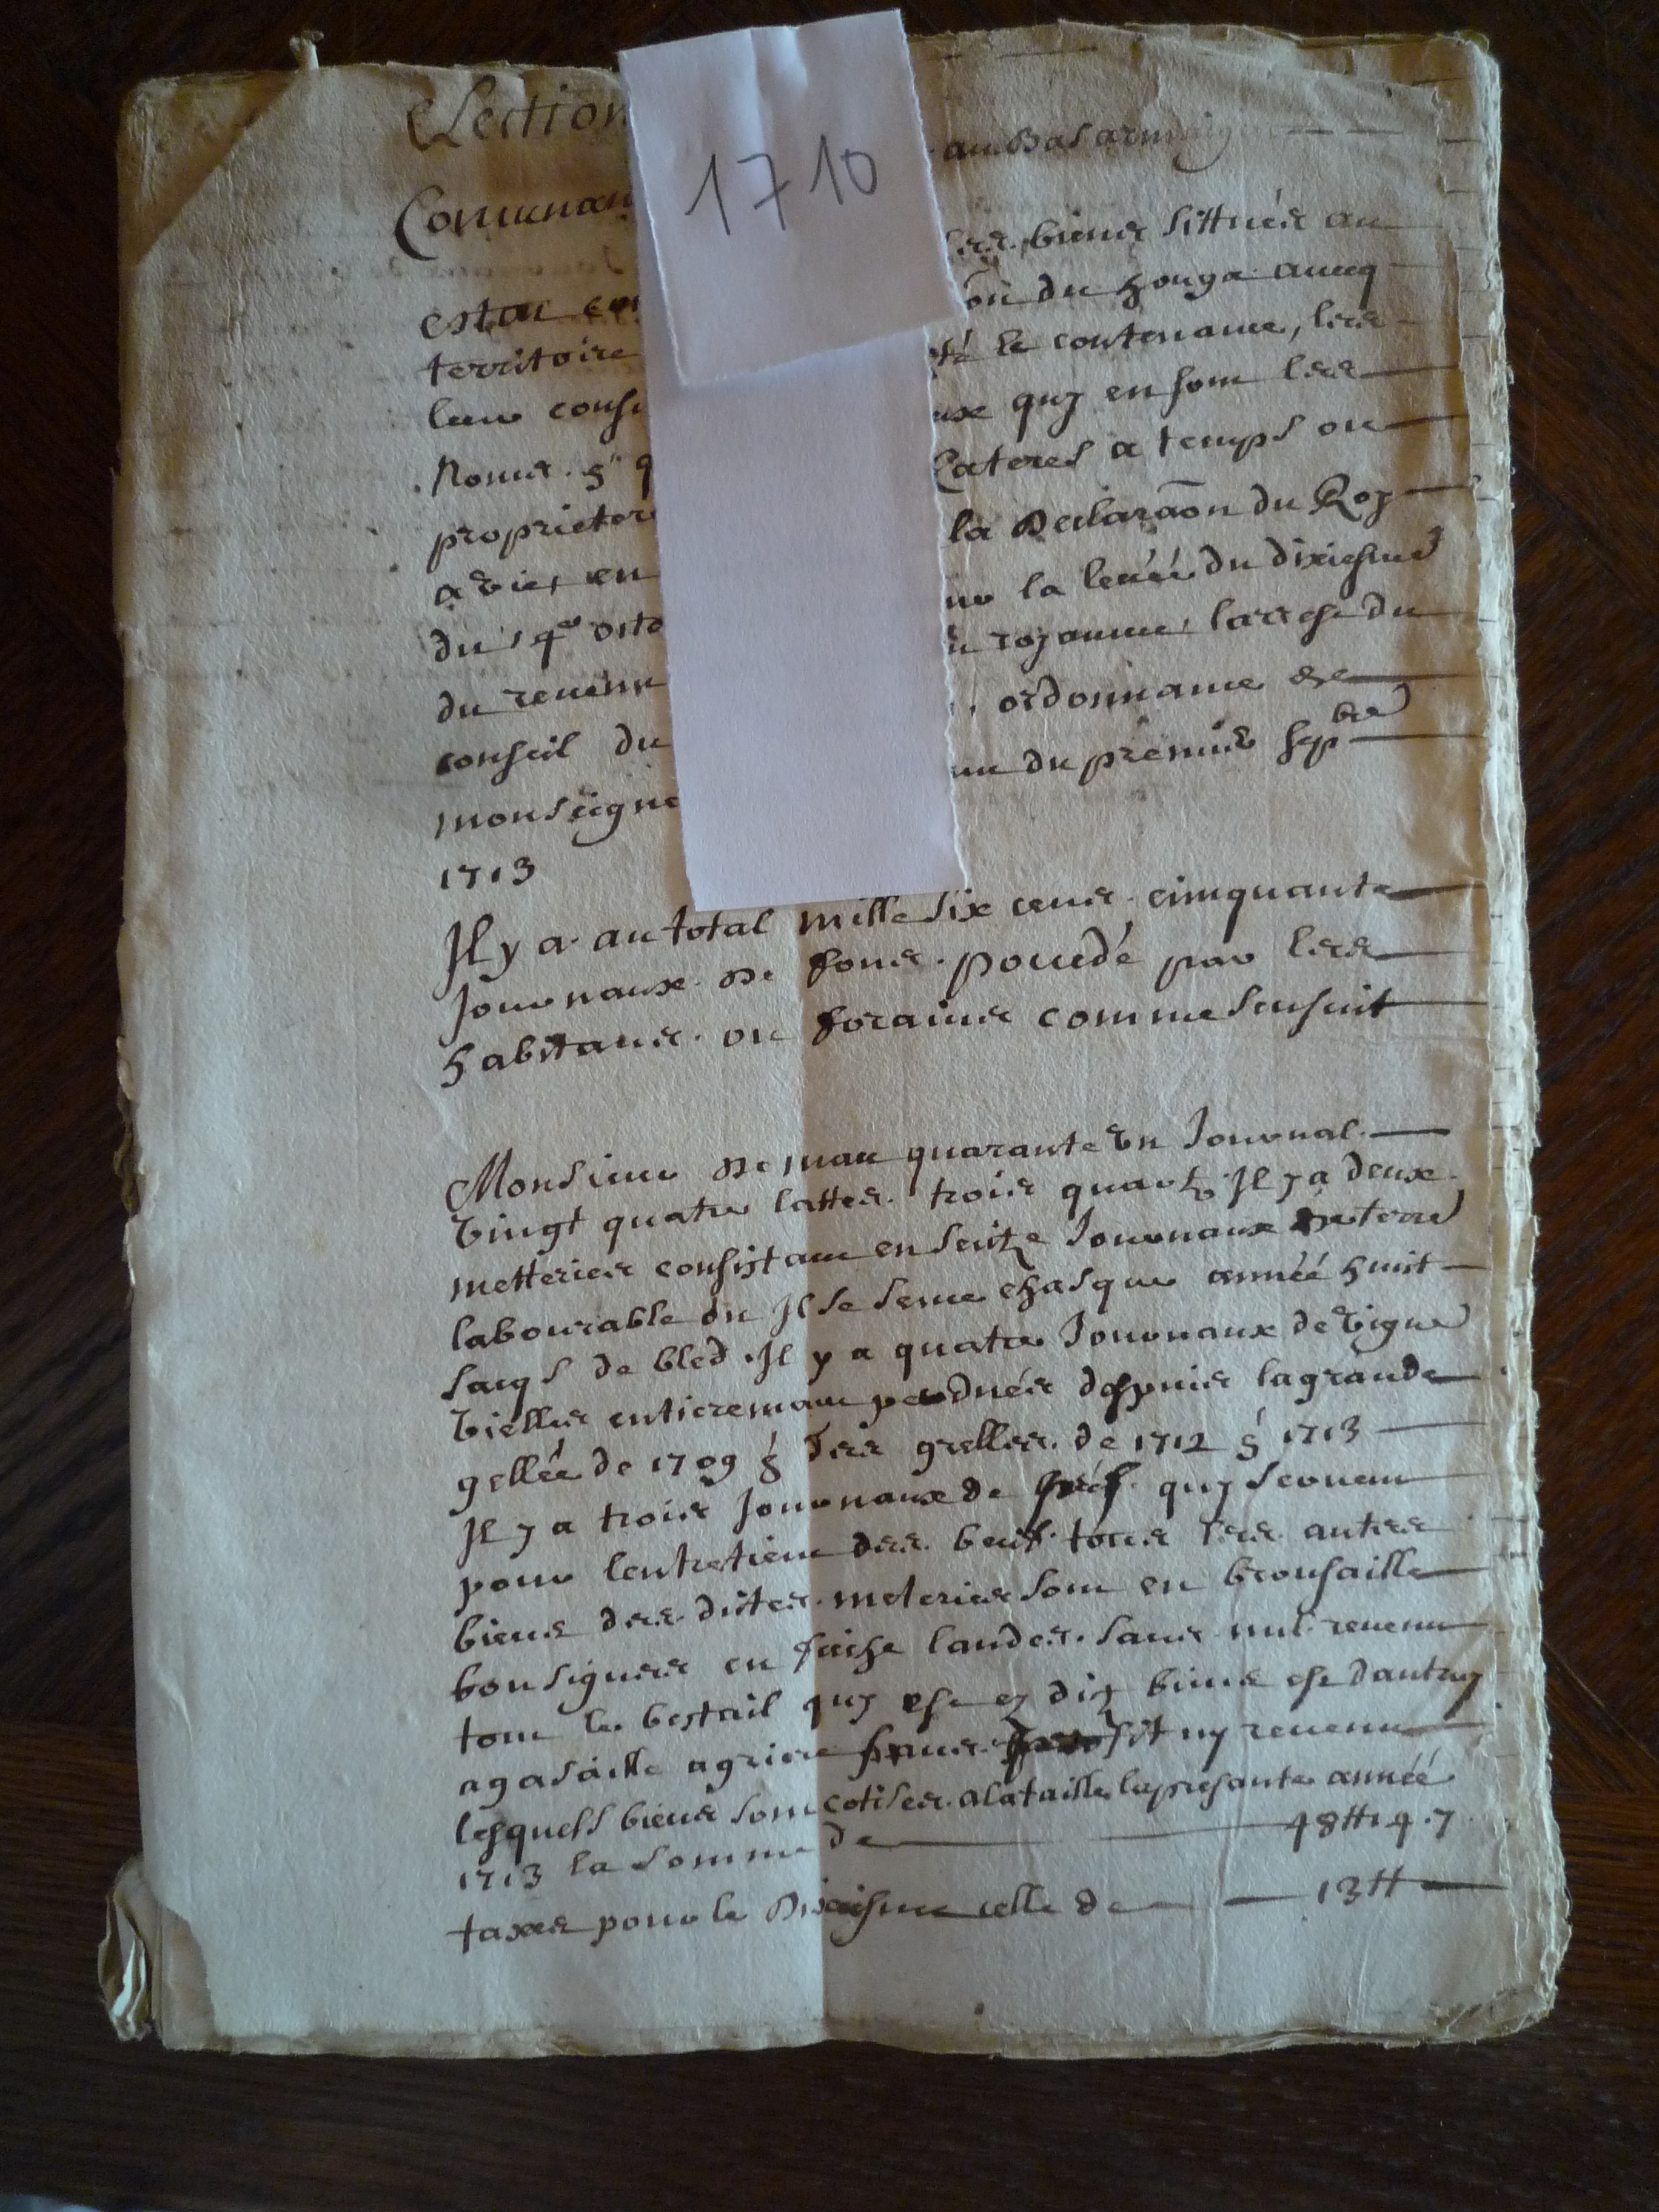 Election
1710
au Bas armaignac
Comunau
les biens sittués au
estat con
on du houga aueq
territoire
té le contenance, les
leur consi
aux quy en sont les
Noms &
cateres a temps ou
proprieter
la Declaraõn du Roy
a vie, en
du 14e octo
ur la leuéé du dixiesme
du reuenu
u royaume, larrest du
conseil du
ordonnance de
monseigne
du premier sepbre
1713
Il y a au total mille six cens cinquante
Journaux de fons possedé par les
habitans ou forains comme sensuit
Monsieur de mau quarante un Journal
vingt quatre lattes trois quarts Il y a deux
metteries consistant en seitze Journaux de terre
labourable ou Il se seme chasque annéé huit
sacqs de bled . Il y a quatre Journaux de vigne
vielles entieremant perdues despuis la grande
gellée de 1709 & des grelles de 1712 & 1713
Il y a trois Journaux de préts quy seruent
pour lentretient des beufs tous les autres
biens des dictes meteries sont en brousailles
bousigues ou friche landes sans nul reuenu
tout le bestail quy est es dits biens est dautruy
agasaille agriere sans profit ny reuenu
lesquels biens sont cotises a la taille la presante annéé
1713 la somme de 48tt 4 . 7
taxes pour le Dixiesme celle de 13tt